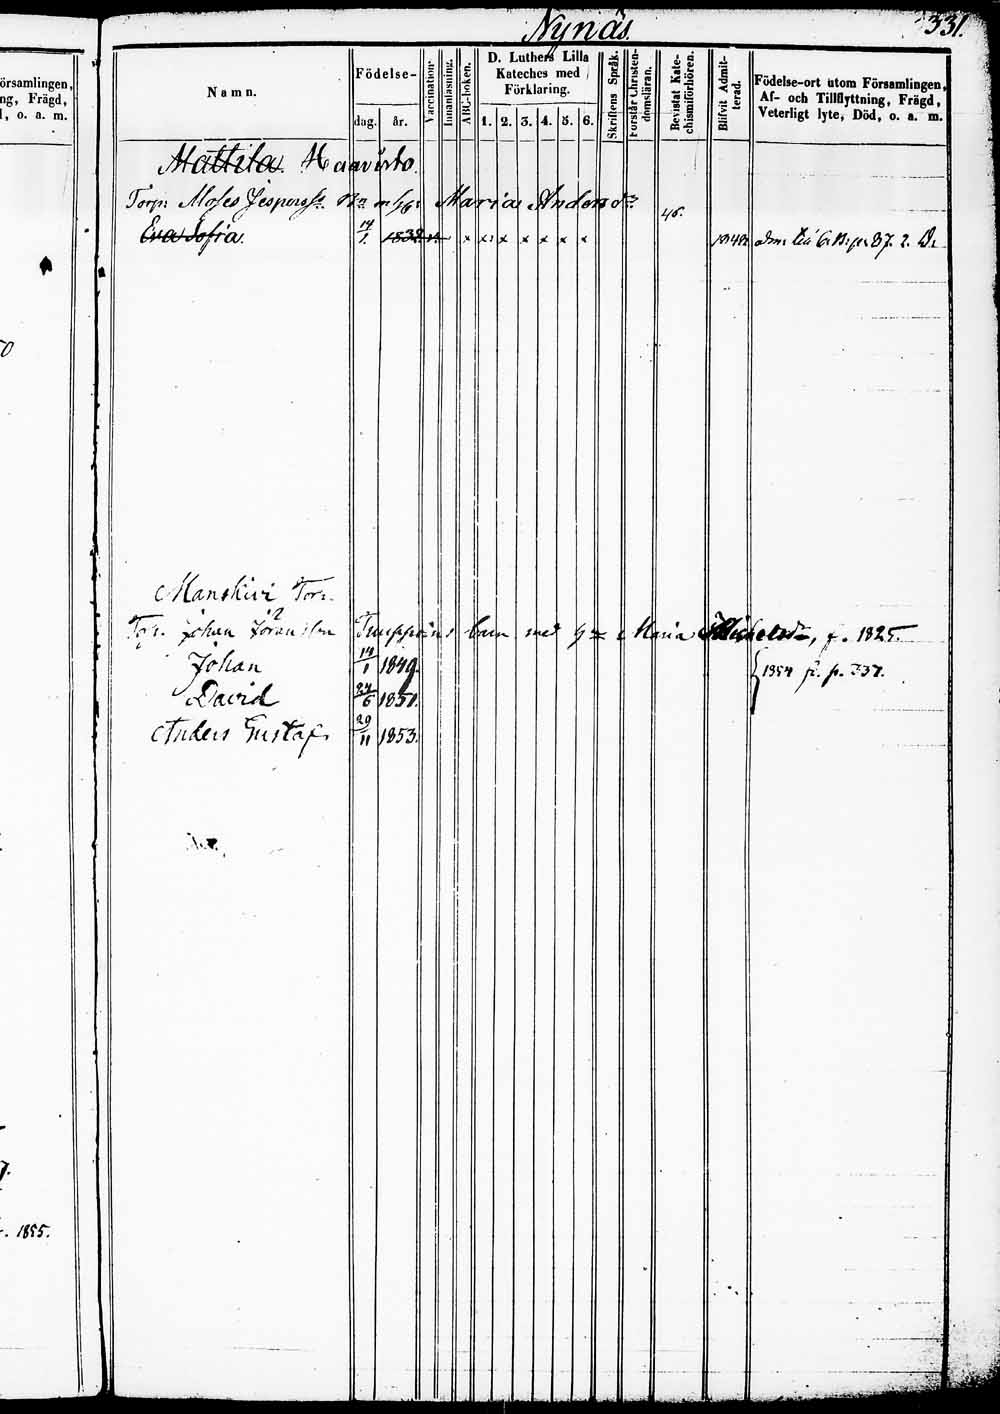 örsamlingen,
ng, Frägd,
l, o. a. m.
1855.
Nynäs.
331.
Namn.
Födelse-
dag.
år.
Vaccination.
Innanläsning.
ABC-boken.
D. Luthers Lilla
Kateches med
Förklaring.
1. 2. 3. 4. 5. 6.
Skriftens Språk.
Förstår Christen-
domsläran.
Bevistat Kate-
chismiförhören.
Blifvit Admit-
terad.
Födelse-ort utom Församlingen,
Af- och Tillflyttning, Frägd,
Veterligt lyte, Död, o. a. m.
Mattila. Haavisto
Torp: Moses Jespersss. Maria Andersdr
46.
Eva Sofia. 14/1. 1832 x x x x x x x 87. 2.
Manskivi Tor:
Tor. Johan Göransson barn med Maria Michelsdr, f. 1825.
Johan 14/1 1849.
1854 fl. p. 337.
David 24/6 1851.
Anders Gustaf. 29/11 1853.